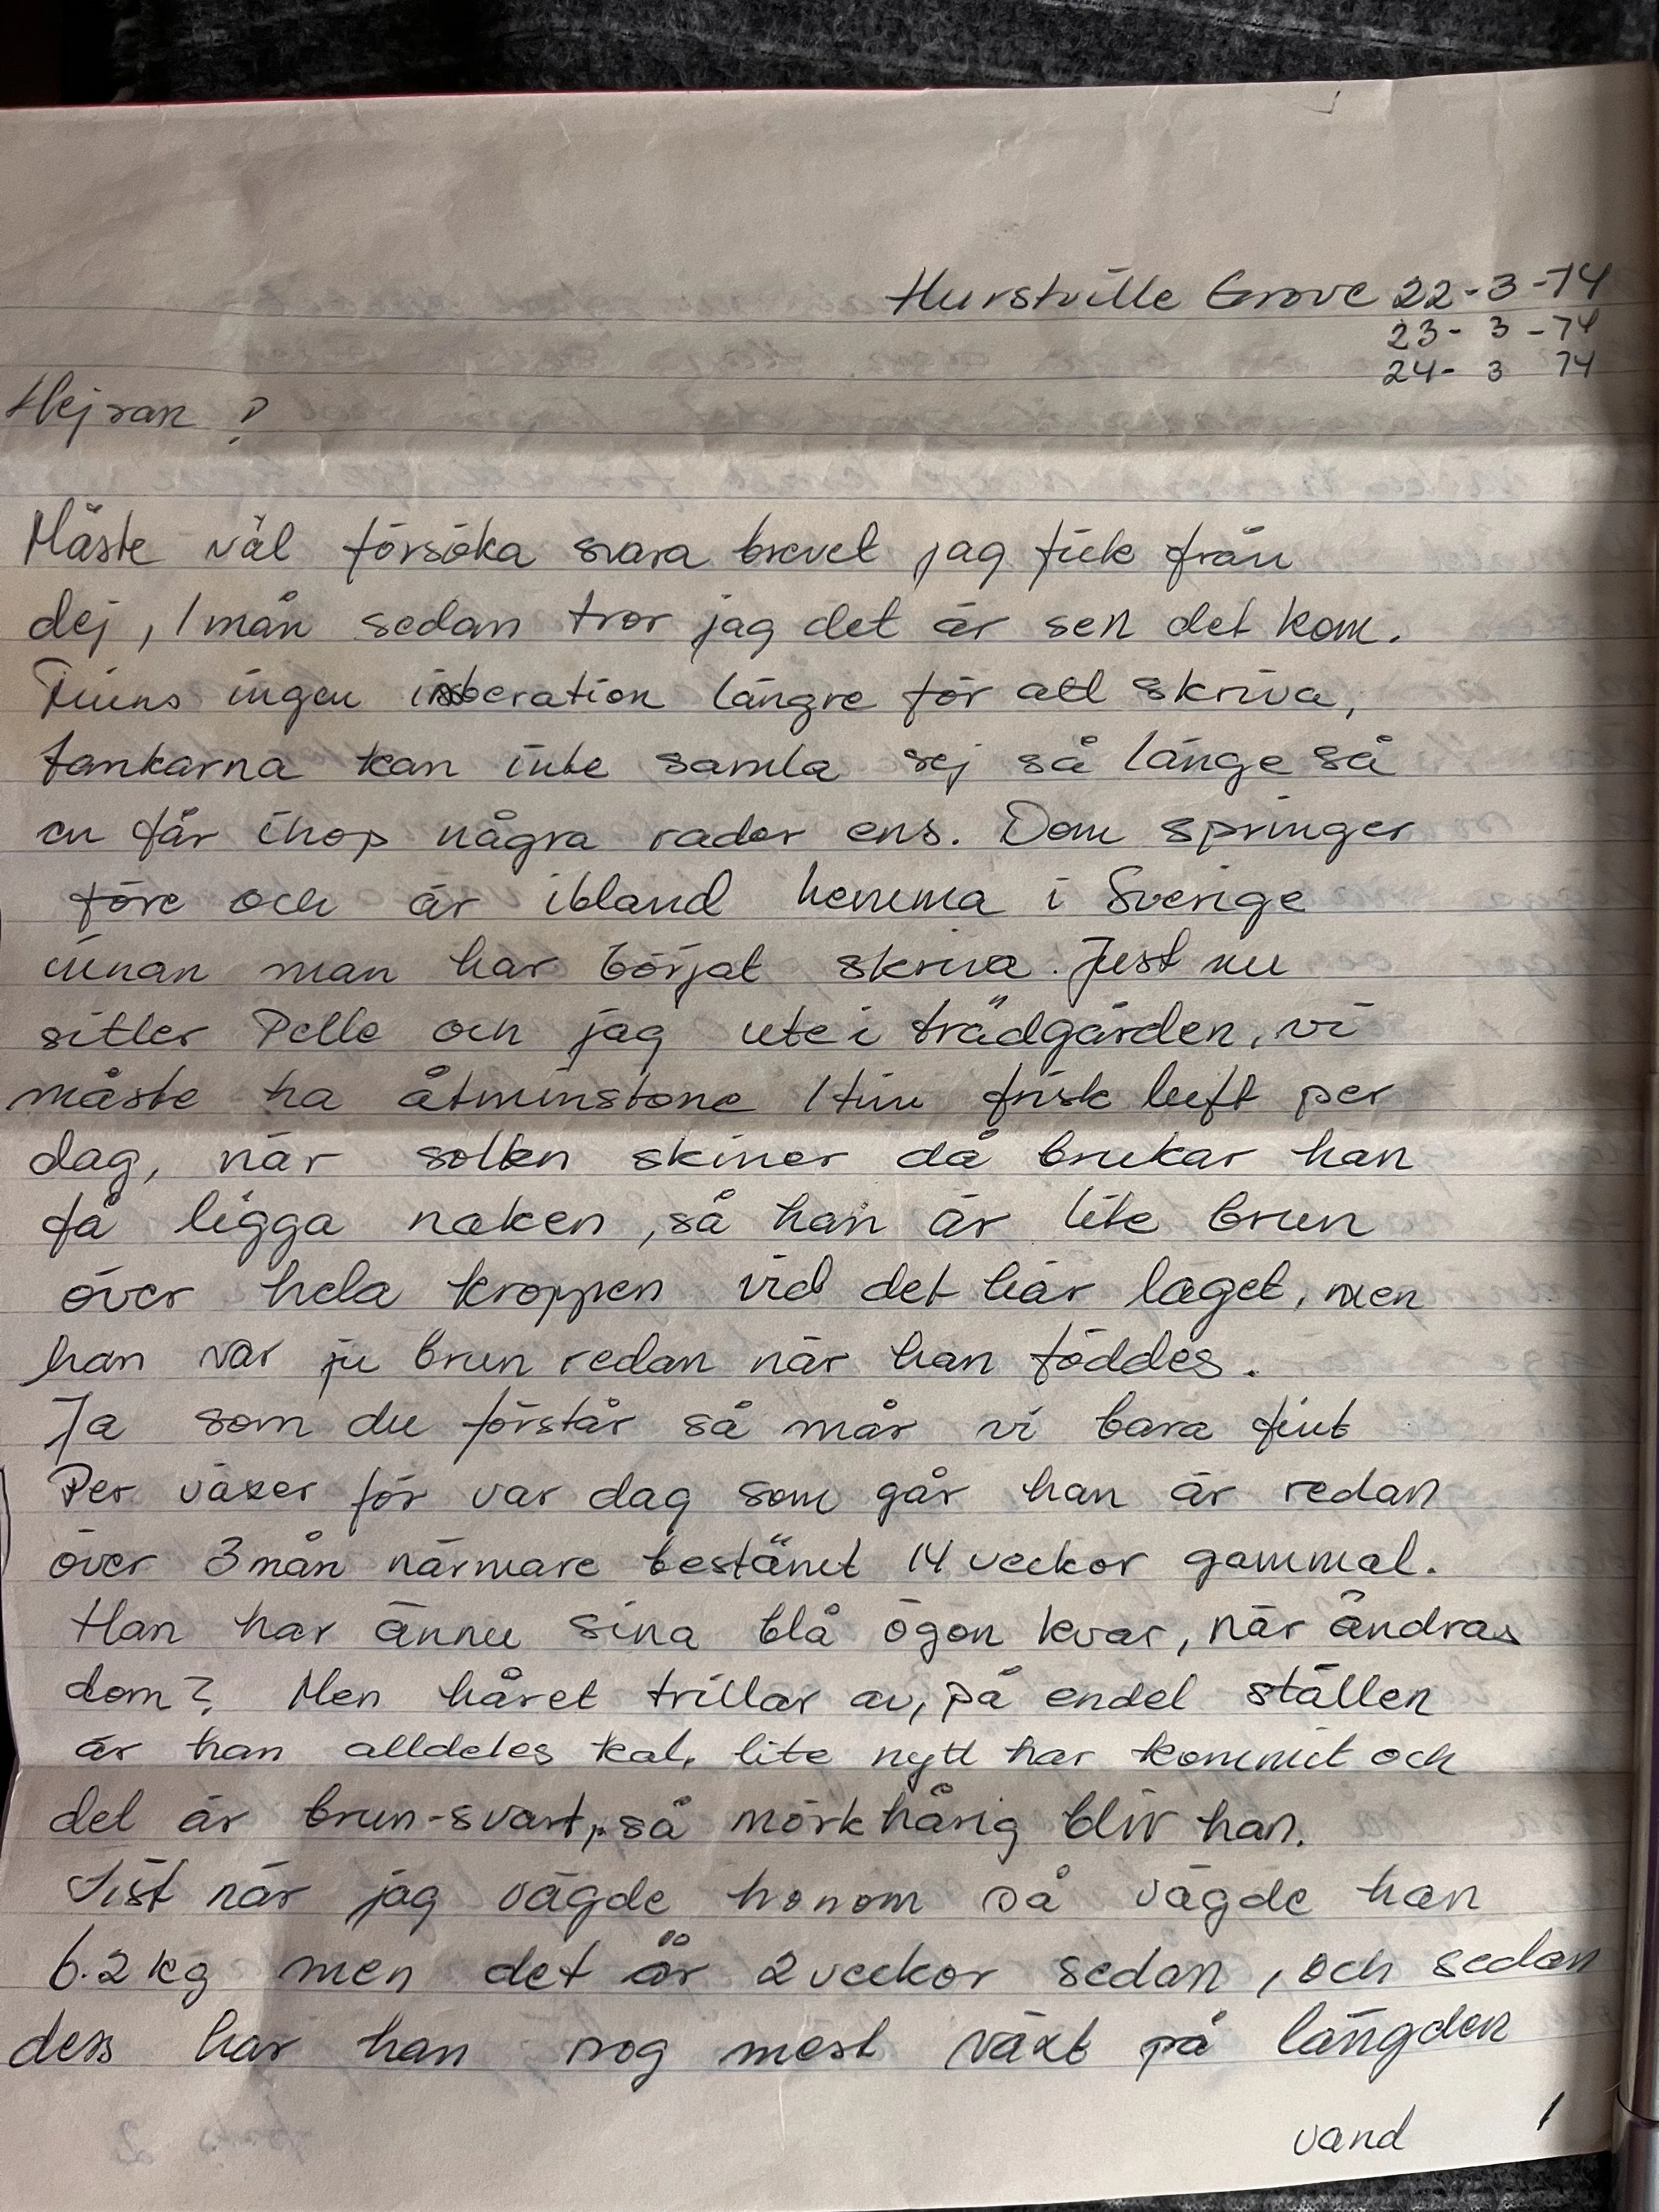 Hurstville Grove 22-3-74
23- 3 -74
24- 3 74
Hejsan ?
Måste väl försöka svara brevet jag fick från
dej, 1 mån sedan tror jag det är sen det kom.
Finns ingen insberation längre för att skriva,
tankarna kan inte samla sej så länge så
en får ihop några rader ens. Dom springer
före och är ibland hemma i Sverige
innan man har börjat skriva. Just nu
sitter Pelle och jag ute i trädgården, vi
måste ha åtminstone 1 tim frisk luft per
dag, när solen skiner då brukar han
få ligga naken, så han är lite brun
över hela kroppen vid det här laget, men
han var ju brun redan när han föddes.
Ja som du förstår så mår vi bara fint
Per växer för var dag som går han är redan
över 3 mån närmare bestämt 14 veckor gammal.
Han har ännu sina blå ögon kvar, när ändras
dom? Men håret trillar av, på endel ställen
är han alldeles kal, lite nytt har kommit och
det är brun-svart, så mörkhårig blir han.
Sist när jag vägde honom så vägde han
6.2 kg men det är 2 veckor sedan, och sedan
dess har han nog mest växt på längden
vänd 1